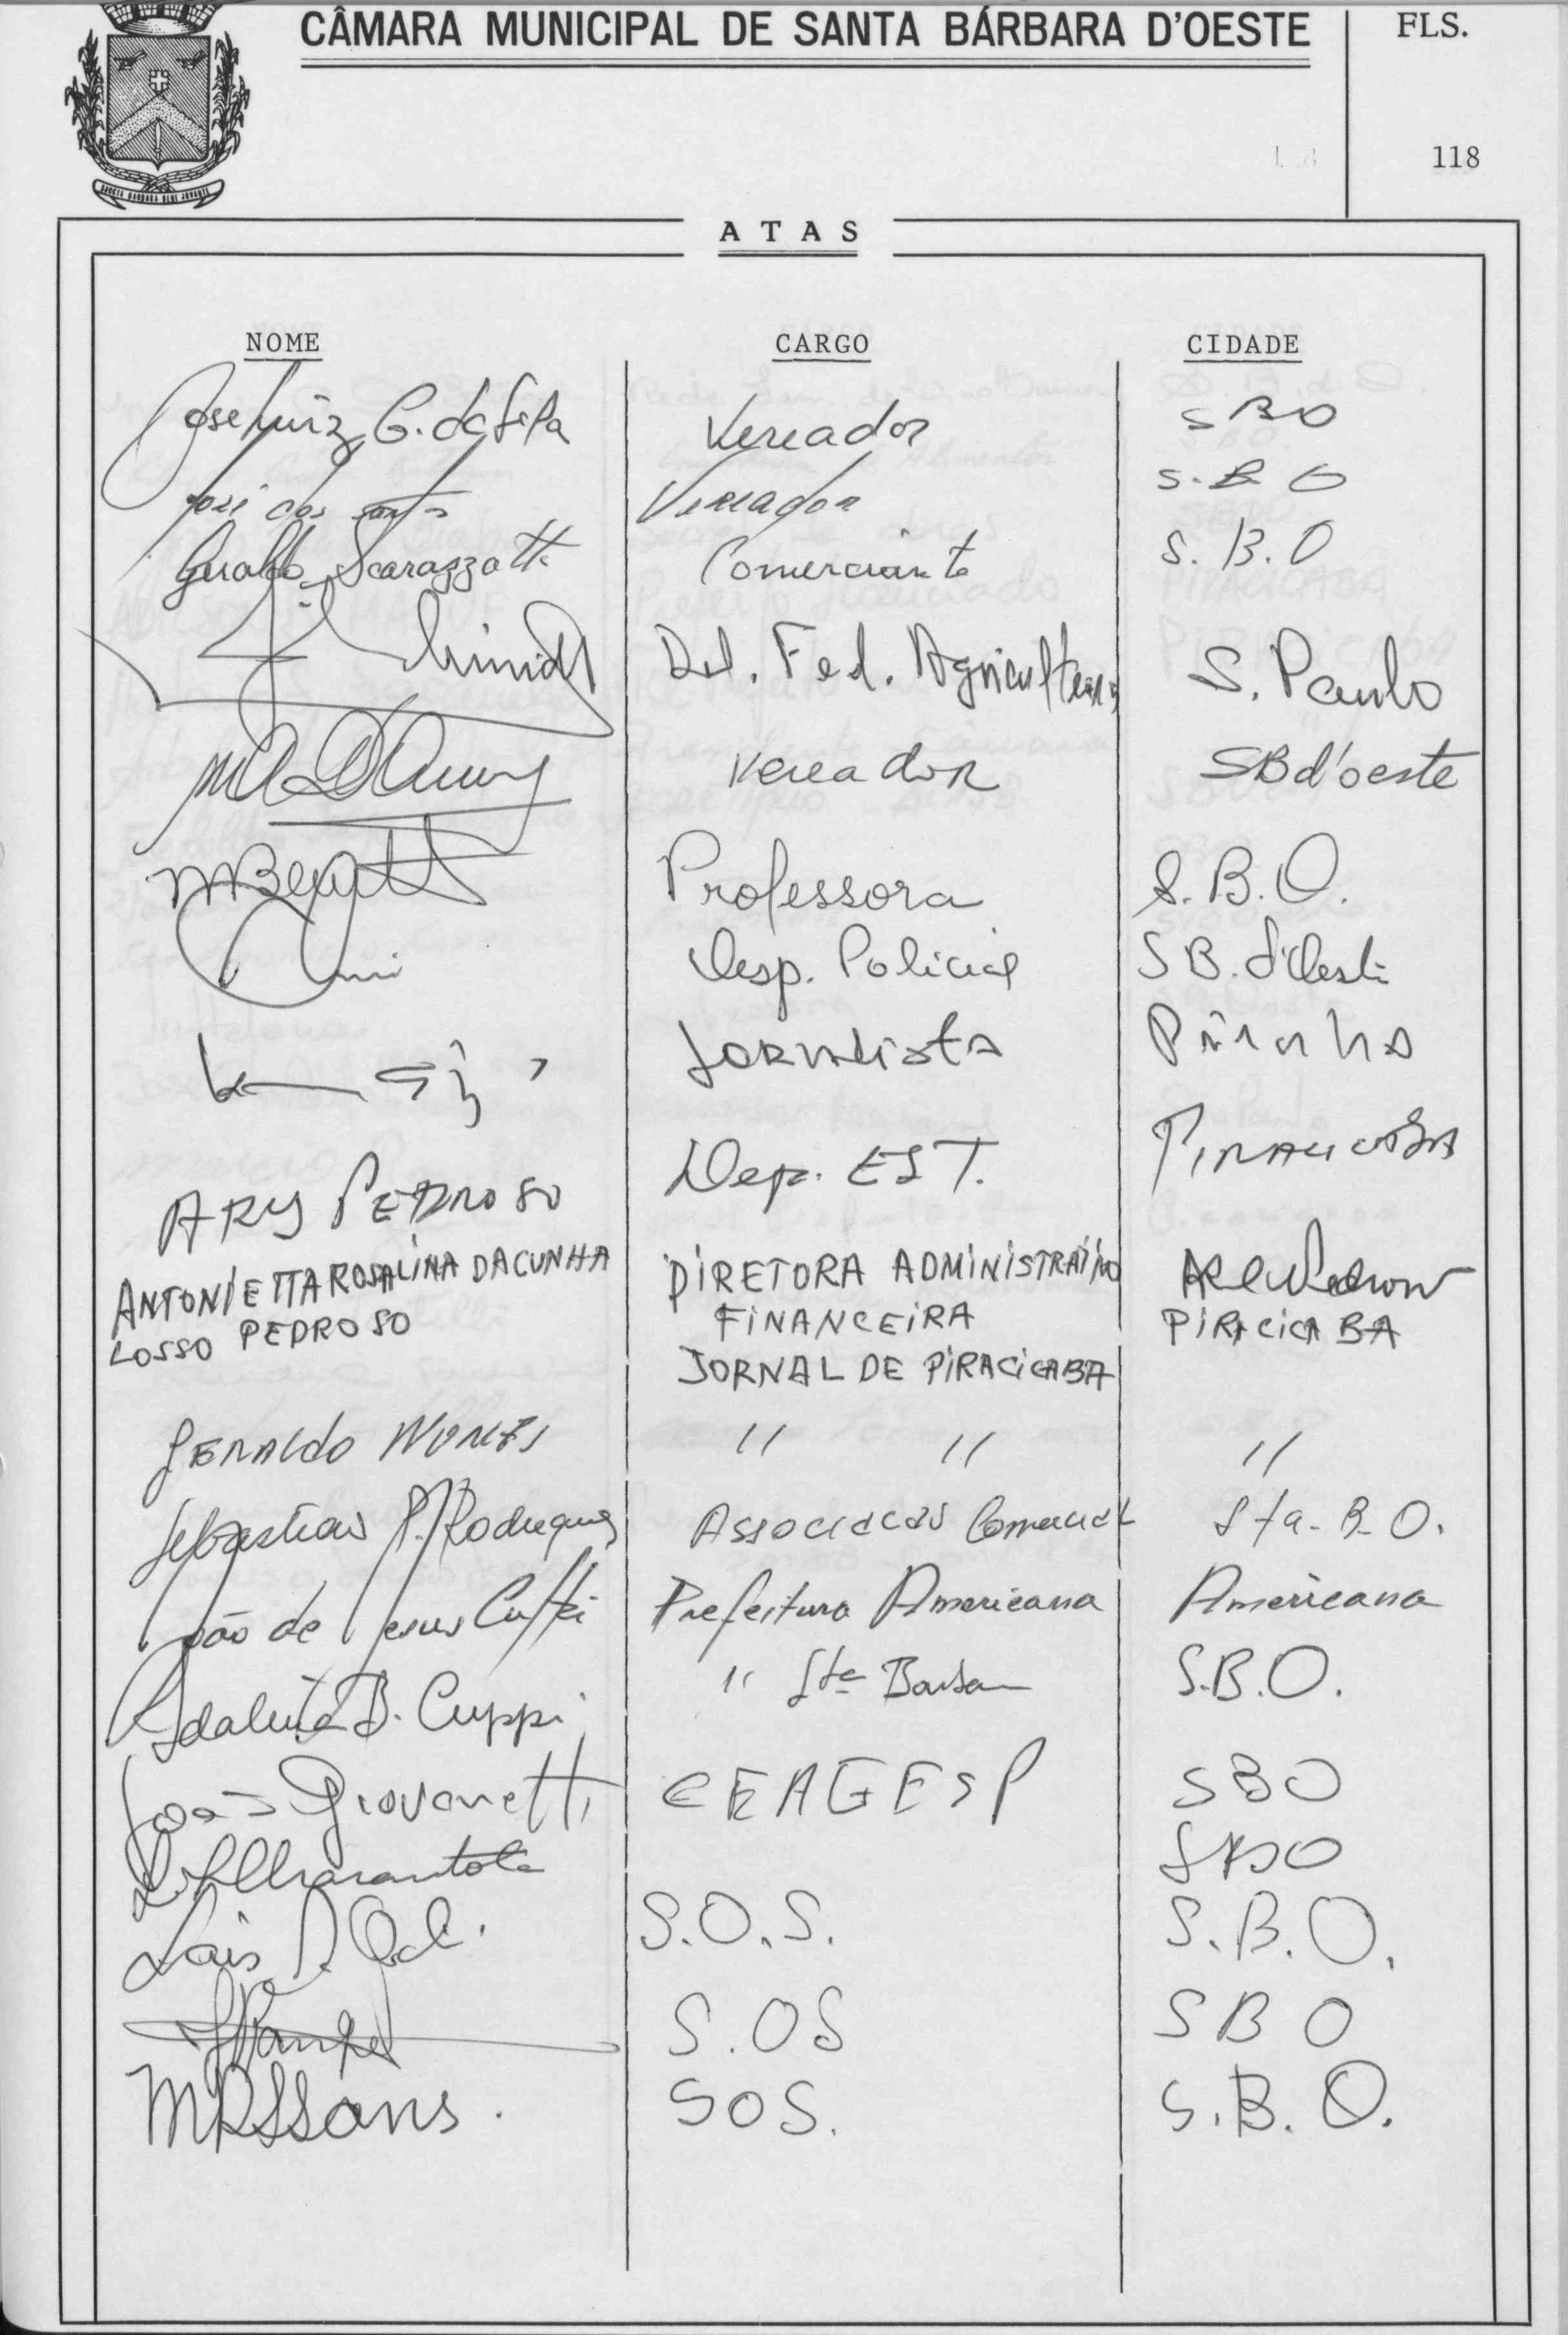 CÂMARA MUNICIPAL DE SANTA BÁRBARA D'OESTE
FLS.
118
SANCTA BARBARA BENE JUVANTE
ATAS
NOME CARGO CIDADE
José Luiz G. da Silva Vereador SBO
José dos Santos Vereador S.B.O
Geraldo Scarazzatti Comerciante S.B.O
Del. Fed. Agricultura S. Paulo
Vereador SBd'oeste
Professora S.B.O.
Desp. Policial SB. d'Oeste
Jornalista
ARY PEDROSO Dep. EST. PIRACICABA
ANTONIETTA ROSALINA DA CUNHA DIRETORA ADMINISTRATIVO
LOSSO PEDROSO FINANCEIRA PIRACICABA
JORNAL DE PIRACICABA
GERALDO NUNES " " "
Sebastião P. Rodrigues Associacao Comercial Sta. B.O.
João de Jesus Prefeitura Americana Americana
B. Cuppi " Sta S.B.O.
João Giovanetti CEAGESP SBO
SBO
Lais S.O.S. S.B.O.
S.OS SBO
SOS. S.B.O.